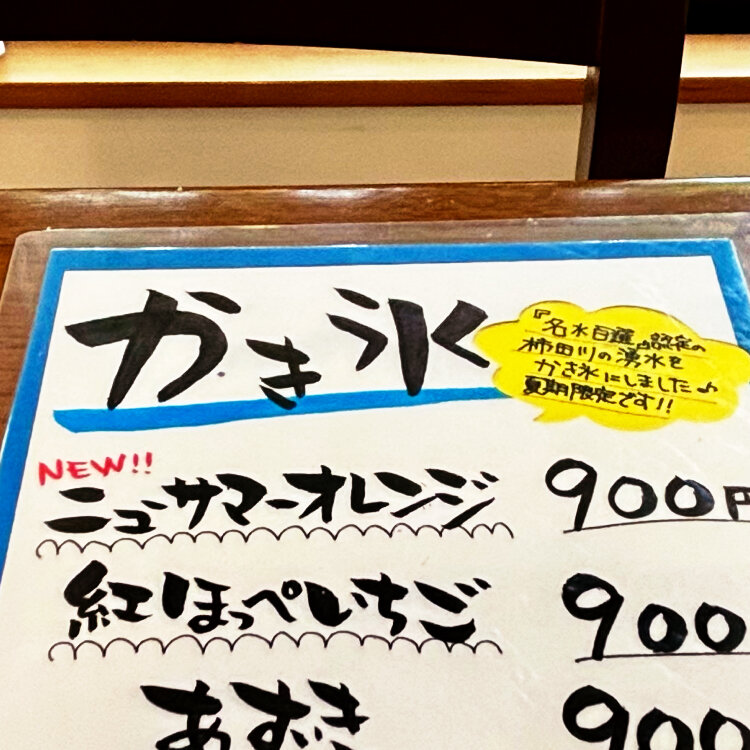 かき氷
『名水百選』認定の
柿田川の湧水を
かき氷にしました♪
夏期限定です!!
NEW!!
ニューサマーオレンジ 900円
紅ほっぺいちご 900
あずき 900